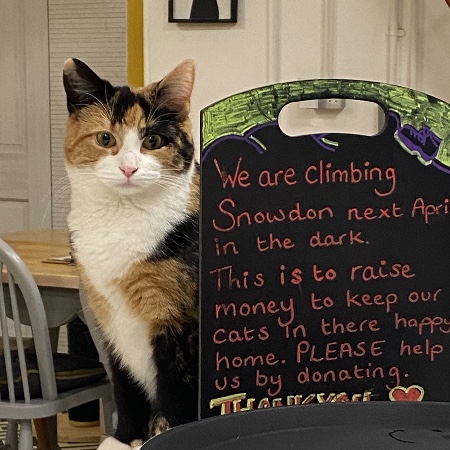 We are climbing
Snowdon next Apri
in the dark.
This is to raise
money to keep our
cats in there happy
home. PLEASE help
us by donating.
THANKYOU